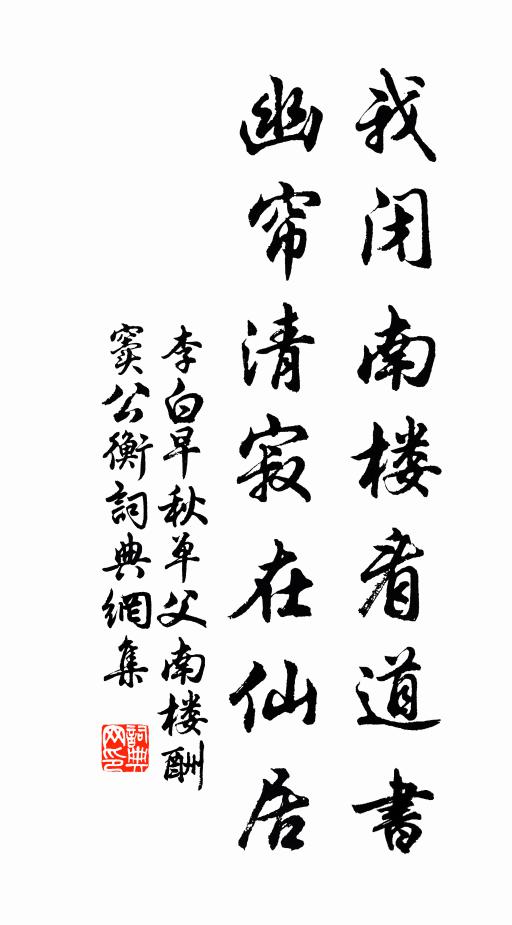 我闭南楼看道書
幽帘清寂在仙居
李白早秋单父南楼酬
窦公衡詞典網集
詞典网印